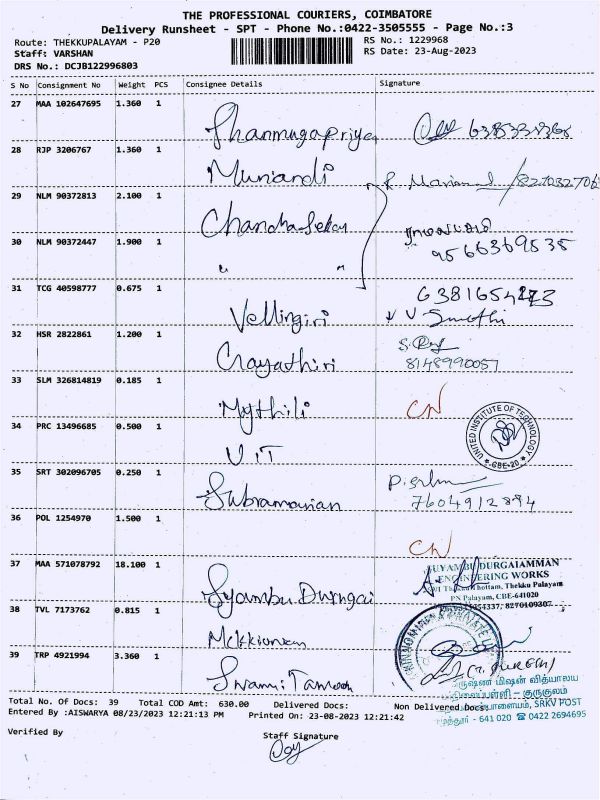 THE PROFESSIONAL COURIERS, COIMBATORE
Delivery Runsheet - SPT - Phone No.:0422-3505555 - Page No.:3
Route: THEKKUPALAYAM - P20
RS No.: 1229968
Staff: VARSHAN
RS Date: 23-Aug-2023
DRS No.: DCJB122996803
S No Consignment No Weight PCS Consignee Details Signature
27 MAA 102647695 1.360 1
Shanmugapriya
28 RJP 3206767 1.360 1
Muniandi
29 NLM 90372813 2.100 1
Chandrasekar
30 NLM 90372447 1.900 1
" "
9566369535
31 TCG 40598777 0.675 1
Vellingiri
V Smethi
32 HSR 2822861 1.200 1
Gayathiri
8148990057
33 SLM 326814819 0.185 1
Mythili CN
34 PRC 13496685 0.500 1
UIT
UNITED INSTITUTE OF TECHNOLOGY
* CBE-20 *
35 SRT 302096705 0.250 1
Subramanian
7604912894
36 POL 1254970 1.500 1
CN
37 MAA 571078792 18.100 1
Syambu Durngai
SUYAMBU DURGAIAMMAN
ENGINEERING WORKS
Thottam, Thekku Palayam
PN Palayam, CBE-641020
8270109307
38 TVL 7173762 0.815 1
39 TRP 4921994 3.360 1
Swami
மிஷன் வித்யாலய
குருகுலம்
SRKV POST
641 020 ☎ 0422 2694695
Total No. Of Docs: 39 Total COD Amt: 630.00 Delivered Docs: Non Delivered Docs:
Entered By :AISWARYA 08/23/2023 12:21:13 PM Printed On: 23-08-2023 12:21:42
Verified By Staff Signature